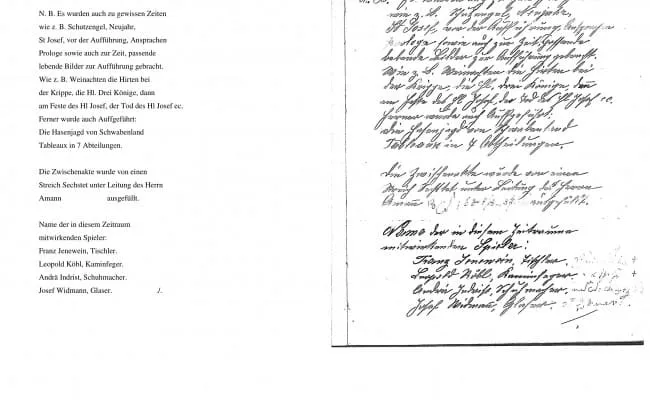 N. B. Es wurden auch zu gewissen Zeiten
wie z. B. Schutzengel, Neujahr,
St Josef, vor der Aufführung, Ansprachen
Prologe sowie auch zur Zeit, passende
lebende Bilder zur Aufführung gebracht.
Wie z. B. Weinachten die Hirten bei
der Krippe, die Hl. Drei Könige, dann
am Feste des Hl Josef, der Tod des Hl Josef ec.
Ferner wurde auch Auffgeführt:
Die Hasenjagd von Schwabenland
Tableaux in 7 Abteilungen.
Die Zwischenakte wurde von einen
Streich Sechstet unter Leitung des Herrn
Amann ausgefüllt.
Name der in diesem Zeitraum
mitwirkenden Spieler:
Franz Jenewein, Tischler.
Leopold Köbl, Kaminfeger.
Andrä Indrist, Schuhmacher.
Josef Widmann, Glaser. ./.
wie z. B. Schutzengel, Neujahr,
St Josef, vor der Aufführung, Ansprache
Prologe sowie auch zur Zeit, passende
lebende Bilder zur Aufführung gebracht.
Wie z. B. Weinachten die Hirten bei
der Krippe, die Hl. drei Könige, dann
am Feste des Hl Josef, der Tod des Hl Josef ec.
Ferner wurde auch Aufgeführt:
die Hasenjagd von Schwabenland
Tableaux in 7 Abtheilungen.
Die Zwischenakte wurde von einen
Streich Sechstet unter Leitung des Herrn
Amann ausgefüllt.
Name der in diesem Zeitraume
mitwirkenden Spieler:
Franz Jenewein, Tischler.
Leopold Köbl, Kaminfeger.
Andrä Indrist, Schuhmacher.
Josef Widmann, Glaser.